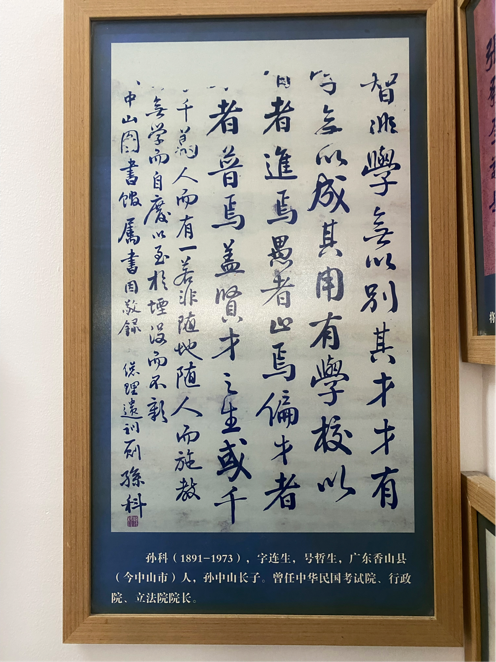 智非學無以別其才才有
無以成其用有學校以
者進焉愚者止焉偏才者
者普焉蓋賢才之生或千
千萬人而有一若非隨地隨人而施教
無学而自廢以至於堙沒而不彰
中山圖書館屬書因敬錄 總理遺訓則 孫科
孙科（1891-1973），字连生，号哲生，广东香山县
（今中山市）人，孙中山长子。曾任中华民国考试院、行政
院、立法院院长。